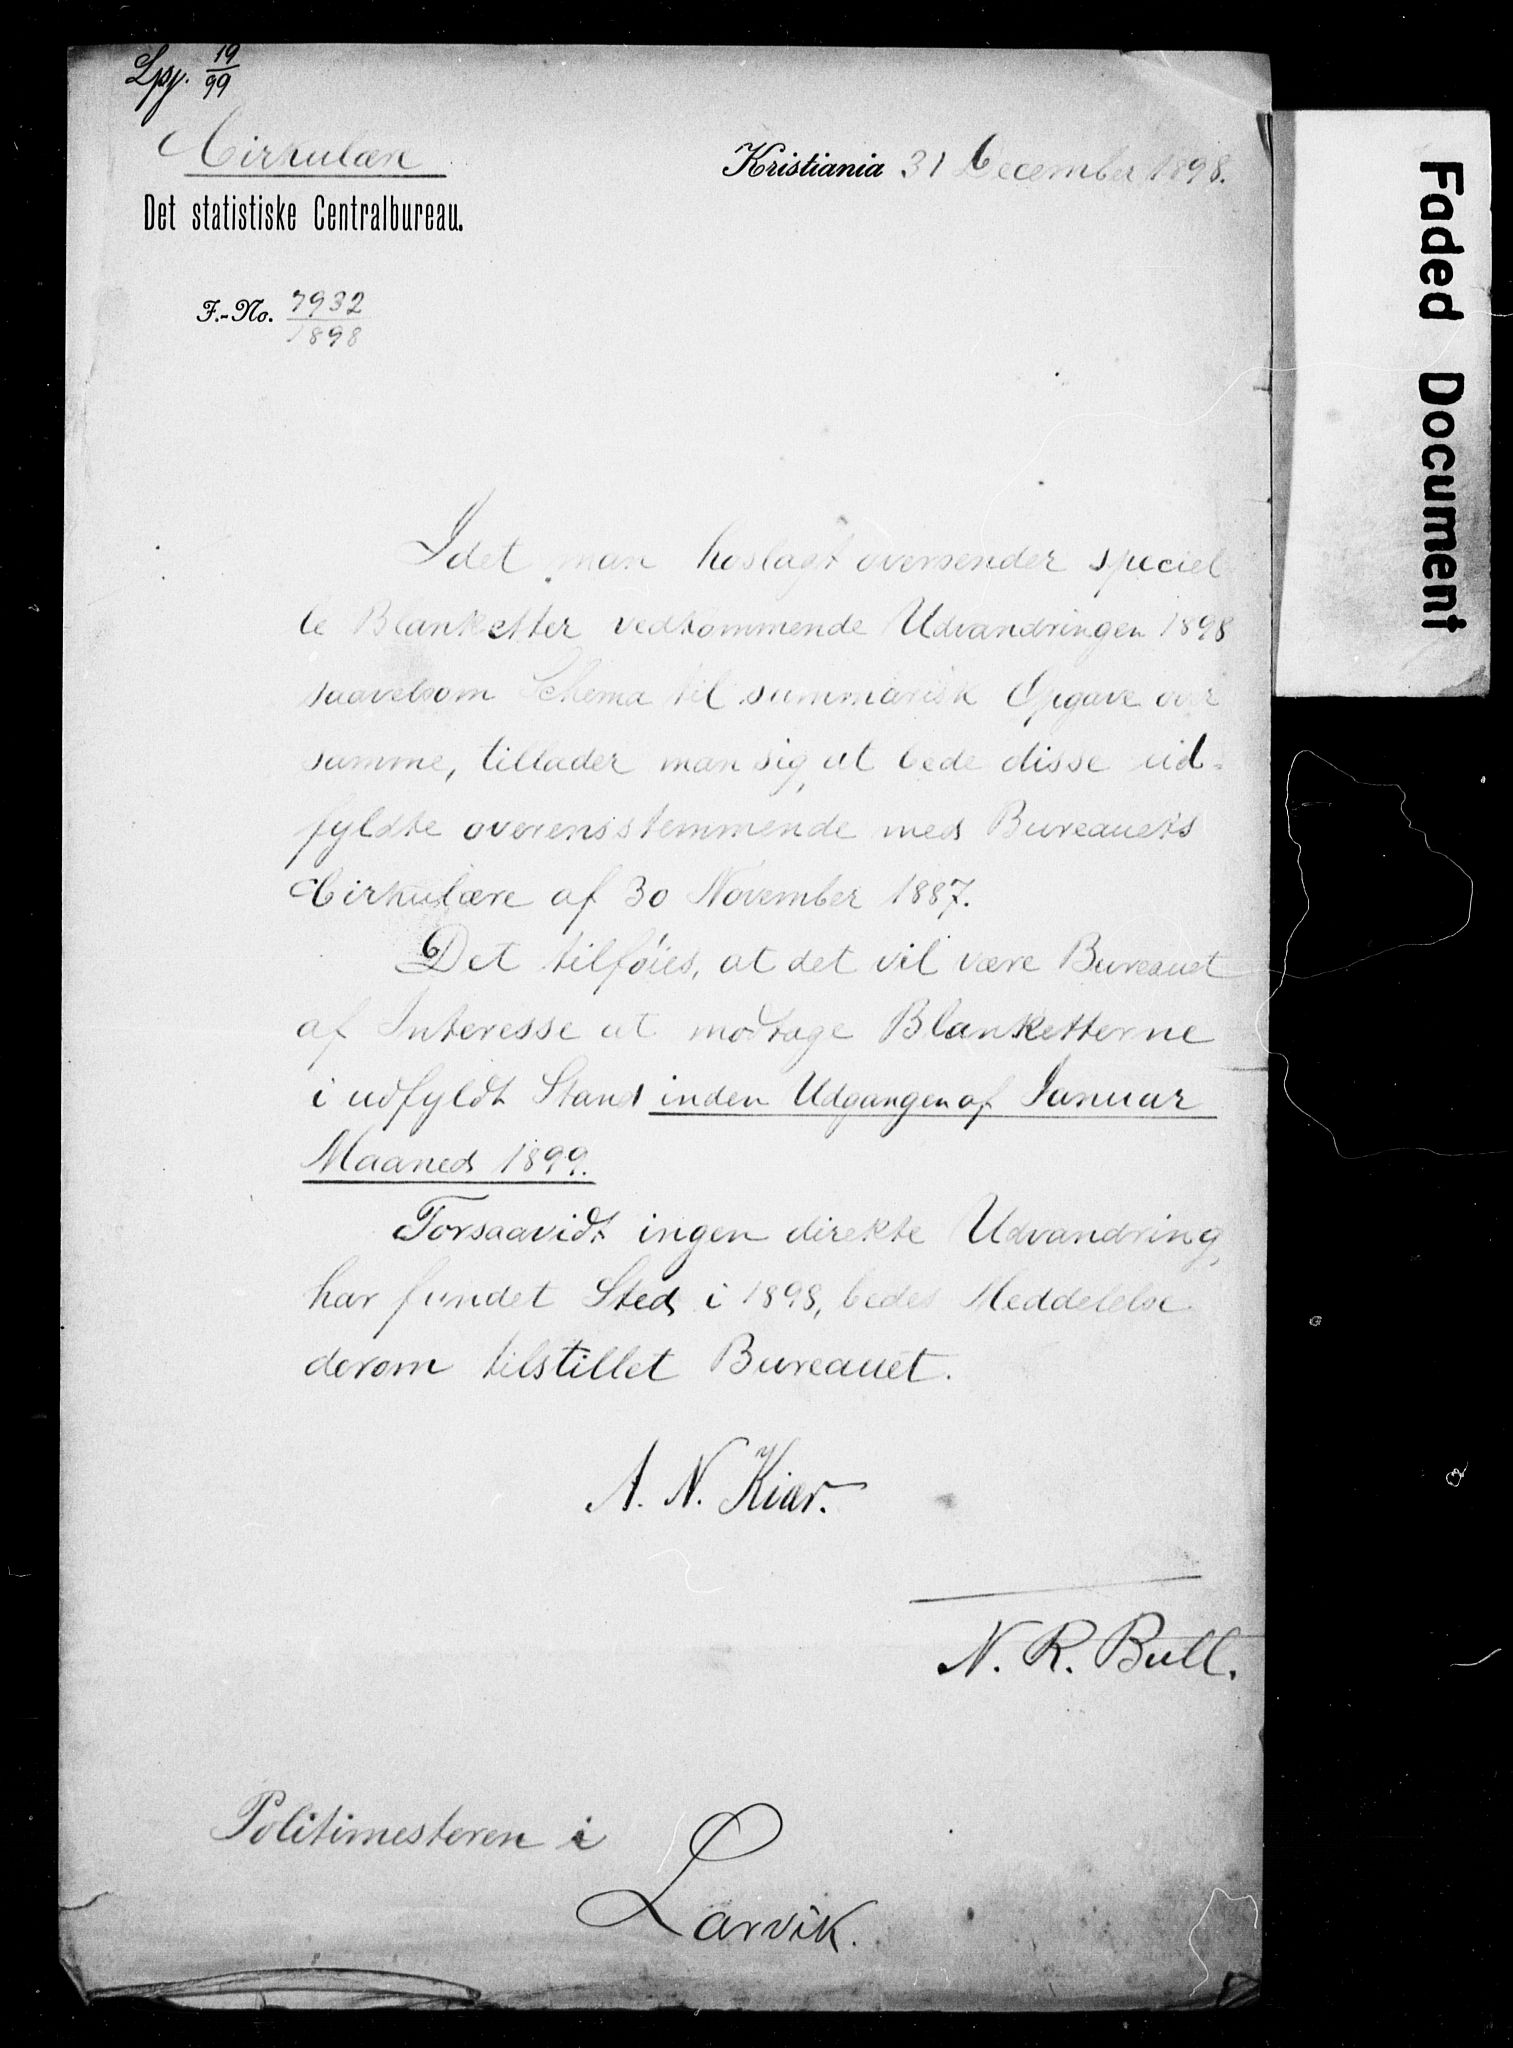 Lpj. 19/99
Cirkulære
Kristiania 31 December 1898.
Det statistiske Centralbureau.
F.-No. 7932/1898
Idet man hoslagt oversender speciel
le Blanketter vedkommende Udvandringen 1898
saavelsom Schema til summarisk Opgave over
samme, tillader man sig, at bede disse ud-
fyldte overensstemmende med Bureauets
Cirkulære af 30 November 1887.
Det tilføies, at det vil være Bureauet
af Interesse at modtage Blanketterne
i udfyldt Stand inden Udgangen af Januar
Maaned 1899.
Forsaavidt ingen direkte Udvandring,
har fundet Sted i 1898, bedes Meddelelse
derom tilstillet Bureauet.
A. N. Kiær.
N. R. Bull.
Politimesteren i
Larvik.
Faded Document